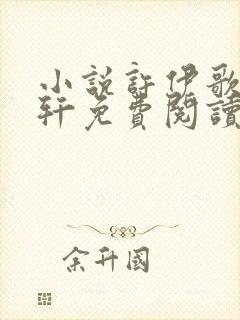 小說許伊歌
軒免費閱讀
余升國